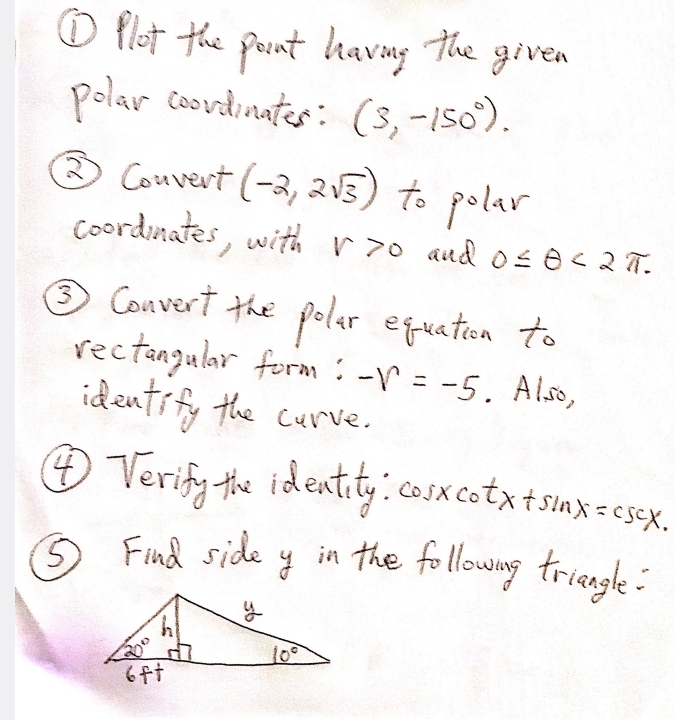 ① Plot the point having the given
polar coordinates: (3, -150°).
② Convert (-2, 2√3) to polar
coordinates, with r > 0 and 0 ≤ θ < 2π.
③ Convert the polar equation to
rectangular form: -r = -5. Also,
identify the curve.
④ Verify the identity: cosx cotx + sinx = cscx.
⑤ Find side y in the following triangle:
y
h
20° 10°
6ft